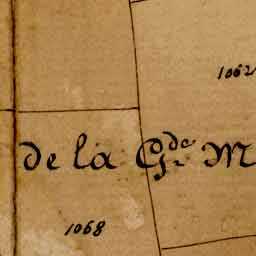 1062
de la G.de M
1068